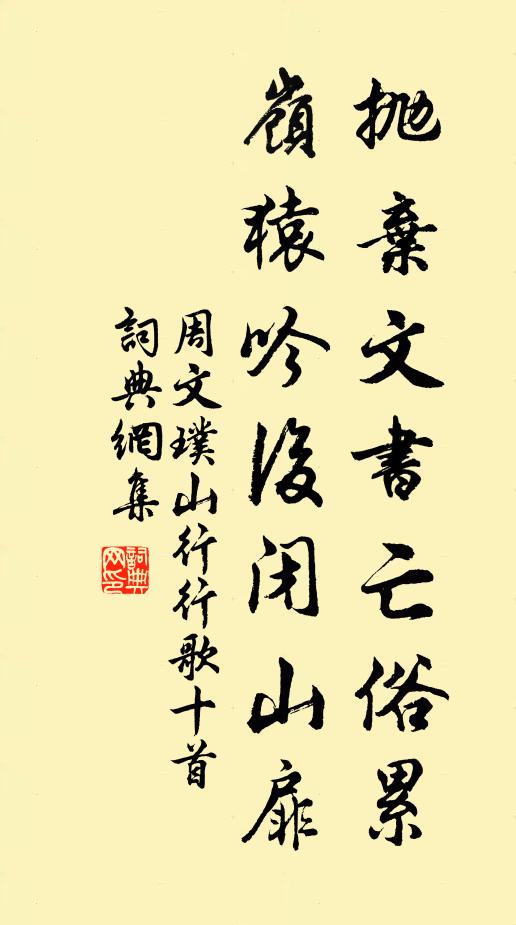 拋棄文書亡俗累
嶺猿吟後閉山扉
周文璞山行行歌十首
詞典網集
詞典网印